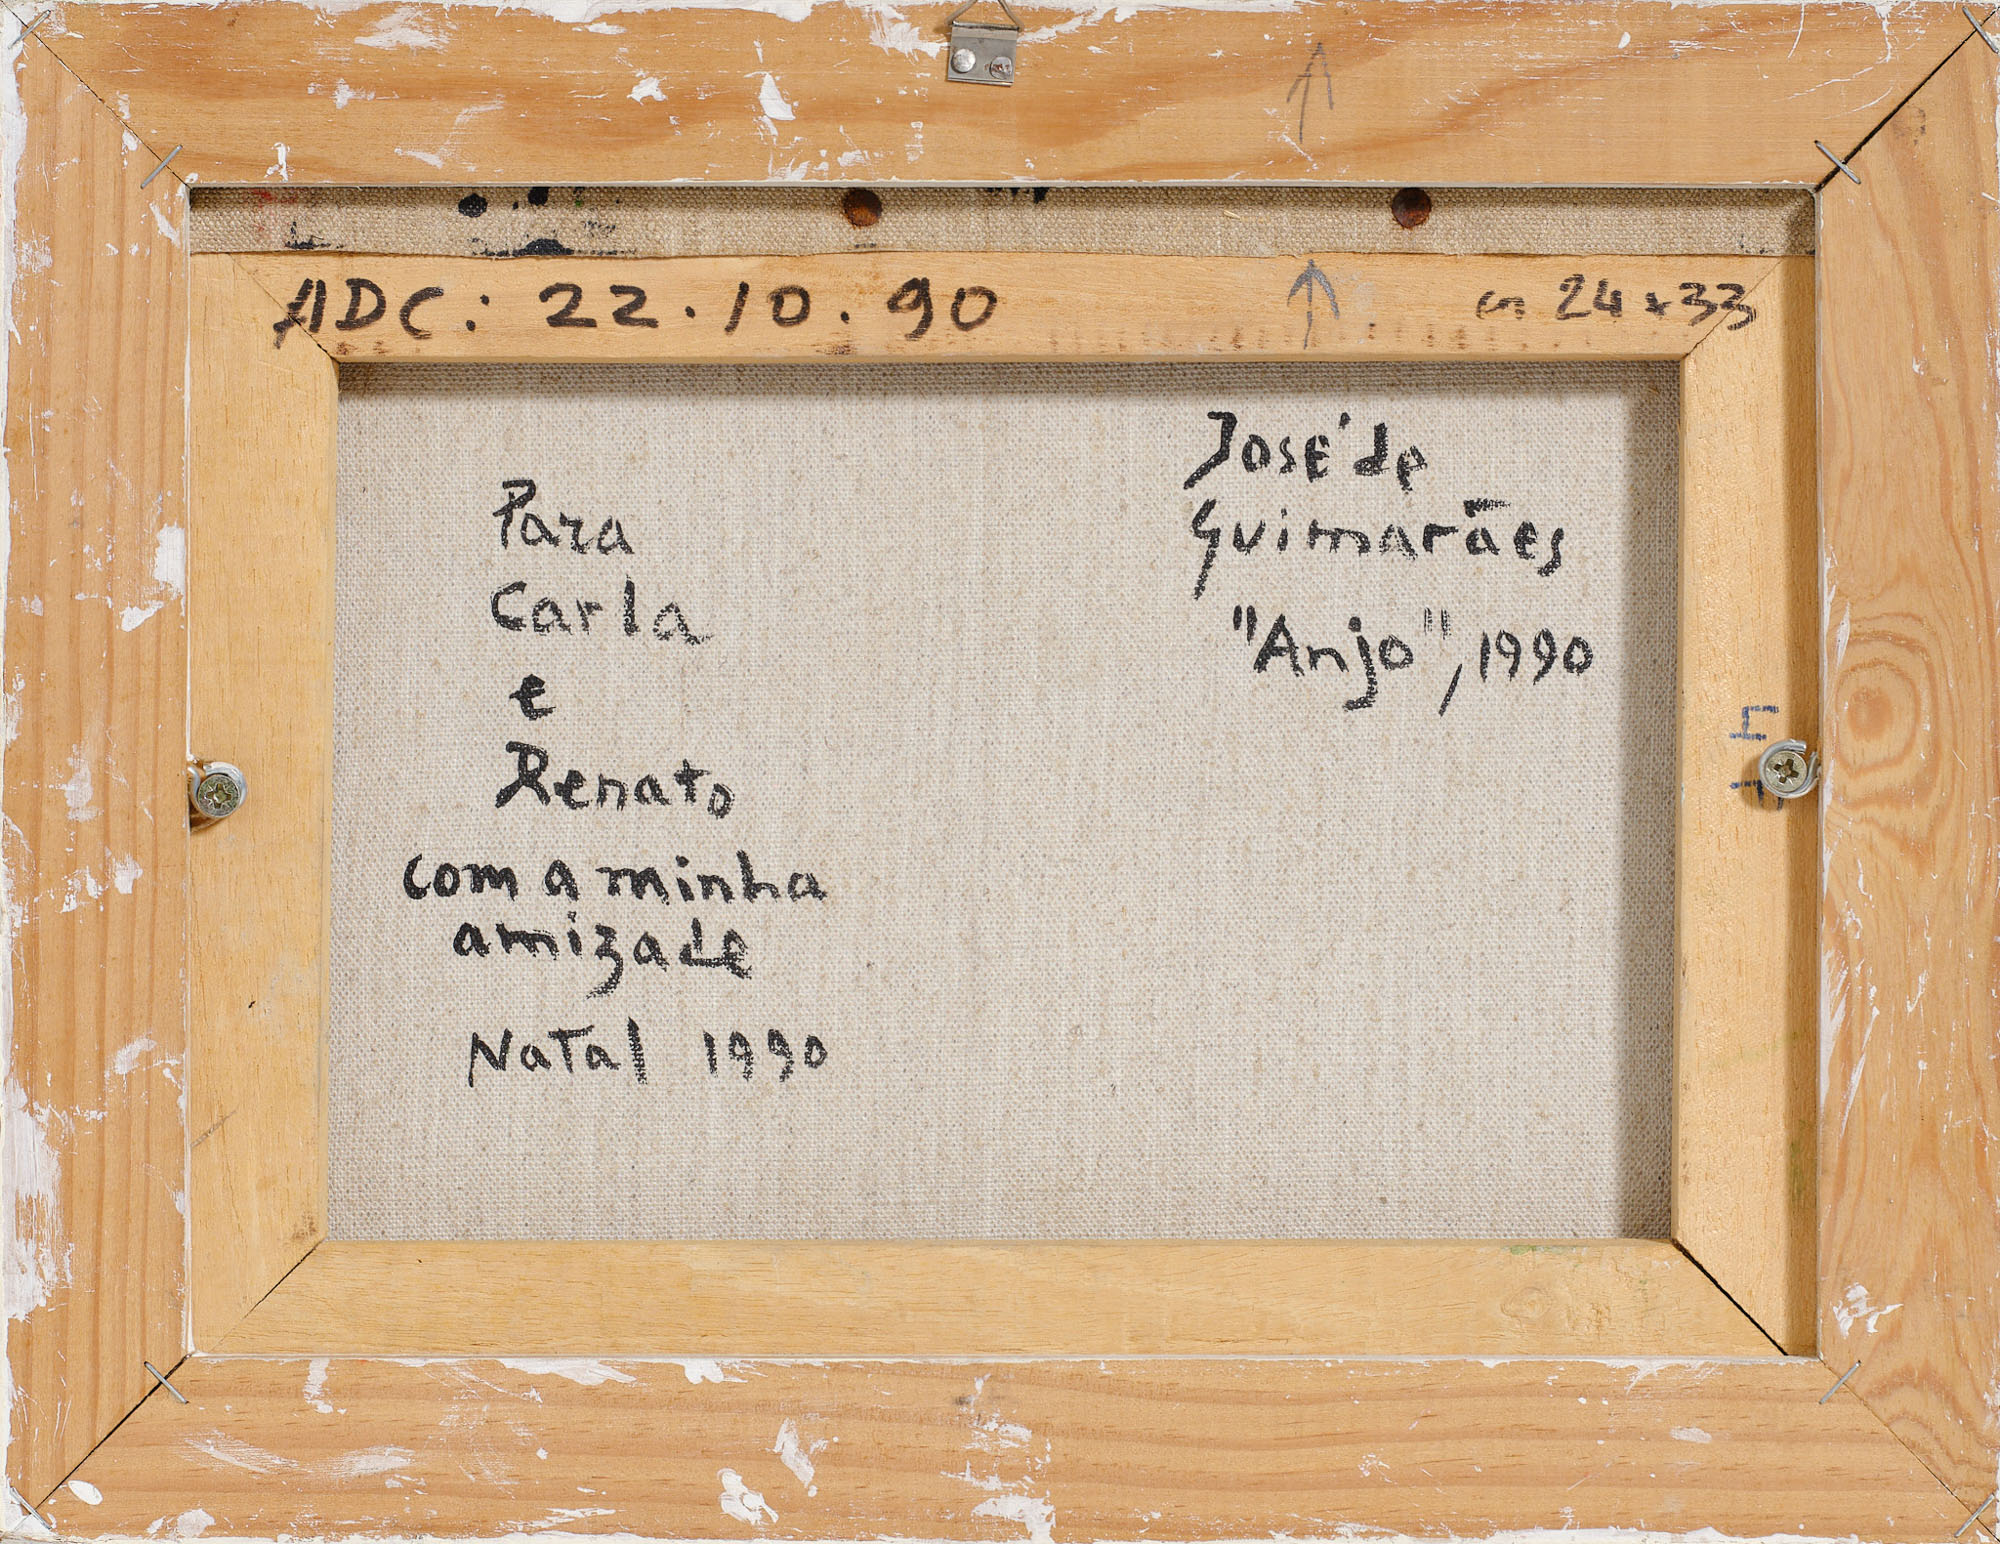 ADC: 22.10.90
cm 24x33
José de
Guimarães
"Anjo", 1990
Para
Carla
e
Renato
com a minha
amizade
Natal 1990